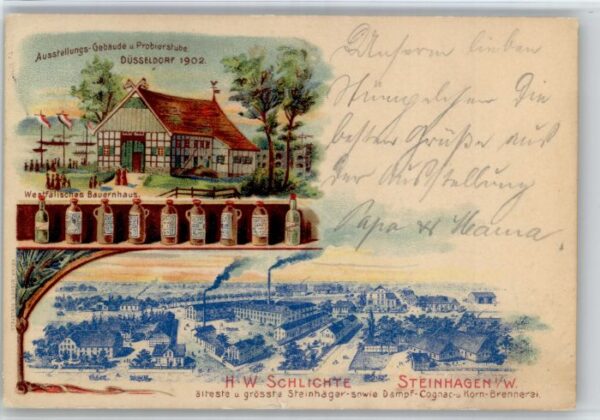 Ausstellungs-Gebäude u Probierstube
DÜSSELDORF 1902.
Westfälisches Bauernhaus.
Unserm lieben
die
besten Grüße aus
der Ausstellung
Papa & Mama.
H. W. SCHLICHTE STEINHAGEN i/W.
älteste u grösste Steinhäger- sowie Dampf-Cognac- u Korn-Brennerei.